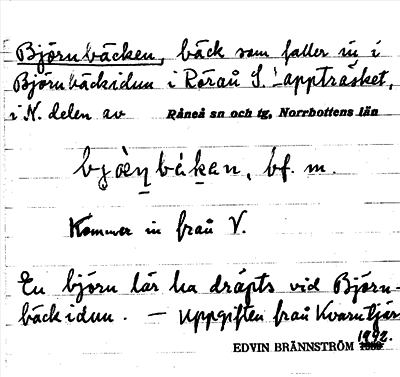 Björnbäcken, bäck som faller in i
Björnbäcksidun i Råneå S. Lappträsket,
i N. delen av Råneå sn och tg, Norrbottens län
bf. m.
Kommer in från V.
En björn lär ha dräpts vid Björn-
bäcksidun. — Uppgiften från Kvarntjärn
1992.
EDVIN BRÄNNSTRÖM